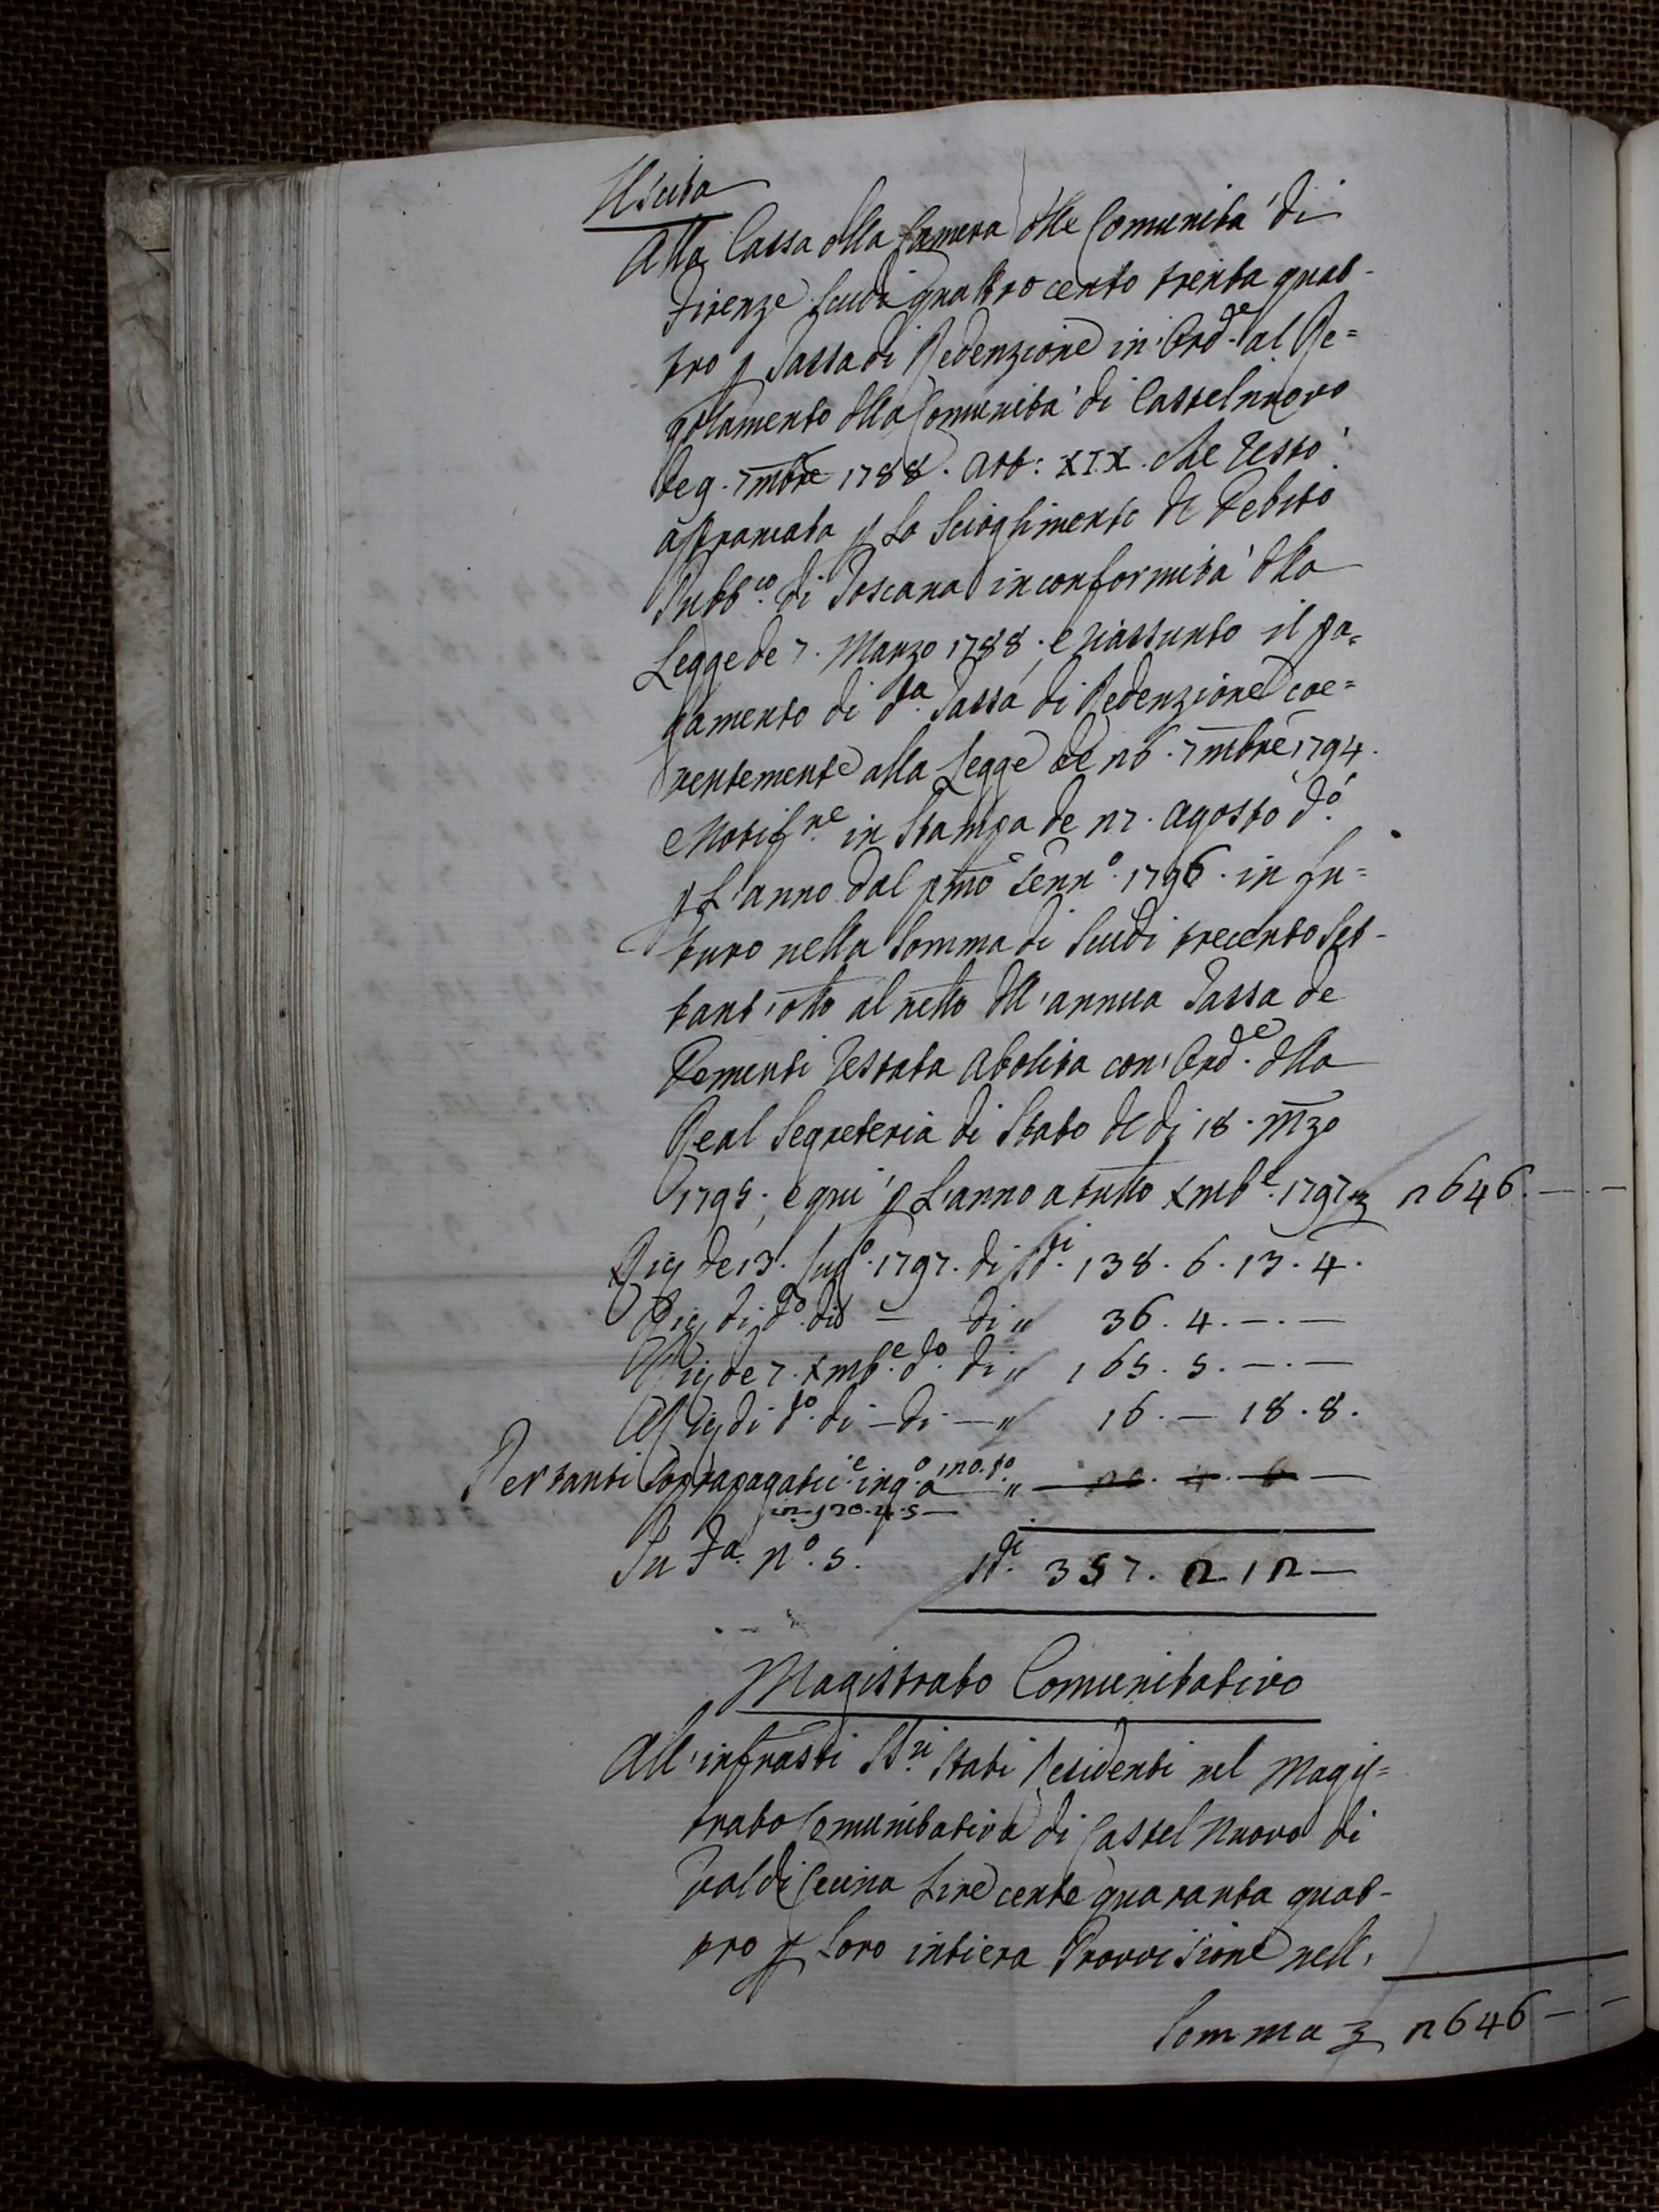 Uscita
Alla Cassa dlla Camera dlle Comunità di
Firenze Scudi quattrocento trenta quat-
tro p Tassa di Redenzione in Ord.e al Re=
golamento dlla Comunità di Castelnuovo
Reg. 7mbre 1788. Art: XIX. che restò
affrancata p Lo Scioglimento de Debito
Pubb.co di Toscana in conformità dlla
Legge de 7. Marzo 1788; e riassunto il pa=
gamento di d.ta Tassa di Redenzione coe=
rentemente alla Legge de 26. 7mbre 1794.
e Notif.ne in Stampa de 27. Agosto d.o
p L'anno dal pmo Genn.o 1796. in fu=
turo nella Somma di Scudi trecento Set-
tant'otto al netto dll'annua Tassa de
Dementi restata abolita con Ord.e dlla
Real Segreteria di Stato de dì 18. Mzo
1795; e qui p L'anno a tutto Xmb.e 1797 2646. — . —
de 13. Lug.o 1797. di sd.i 138. 6. 13. 4.
di d.o dì — di " 36. 4. — . —
de 7. Xmb.e d.o di " 165. 5. — . —
di d.o dì — di — " 16. — 18. 8.
Per tanti
in 120. 4. 5 —
In Fa. N.o 5. sd.i 357. 2 12 —
Magistrato Comunitativo
All'infrasti SS.ri Stati Residenti nel Magis=
trato Comunitativo di Castel Nuovo di
Val di Cecina Lire cento quaranta quat-
tro p Loro intiera Provvisione nell'
Somma 2646 — . —